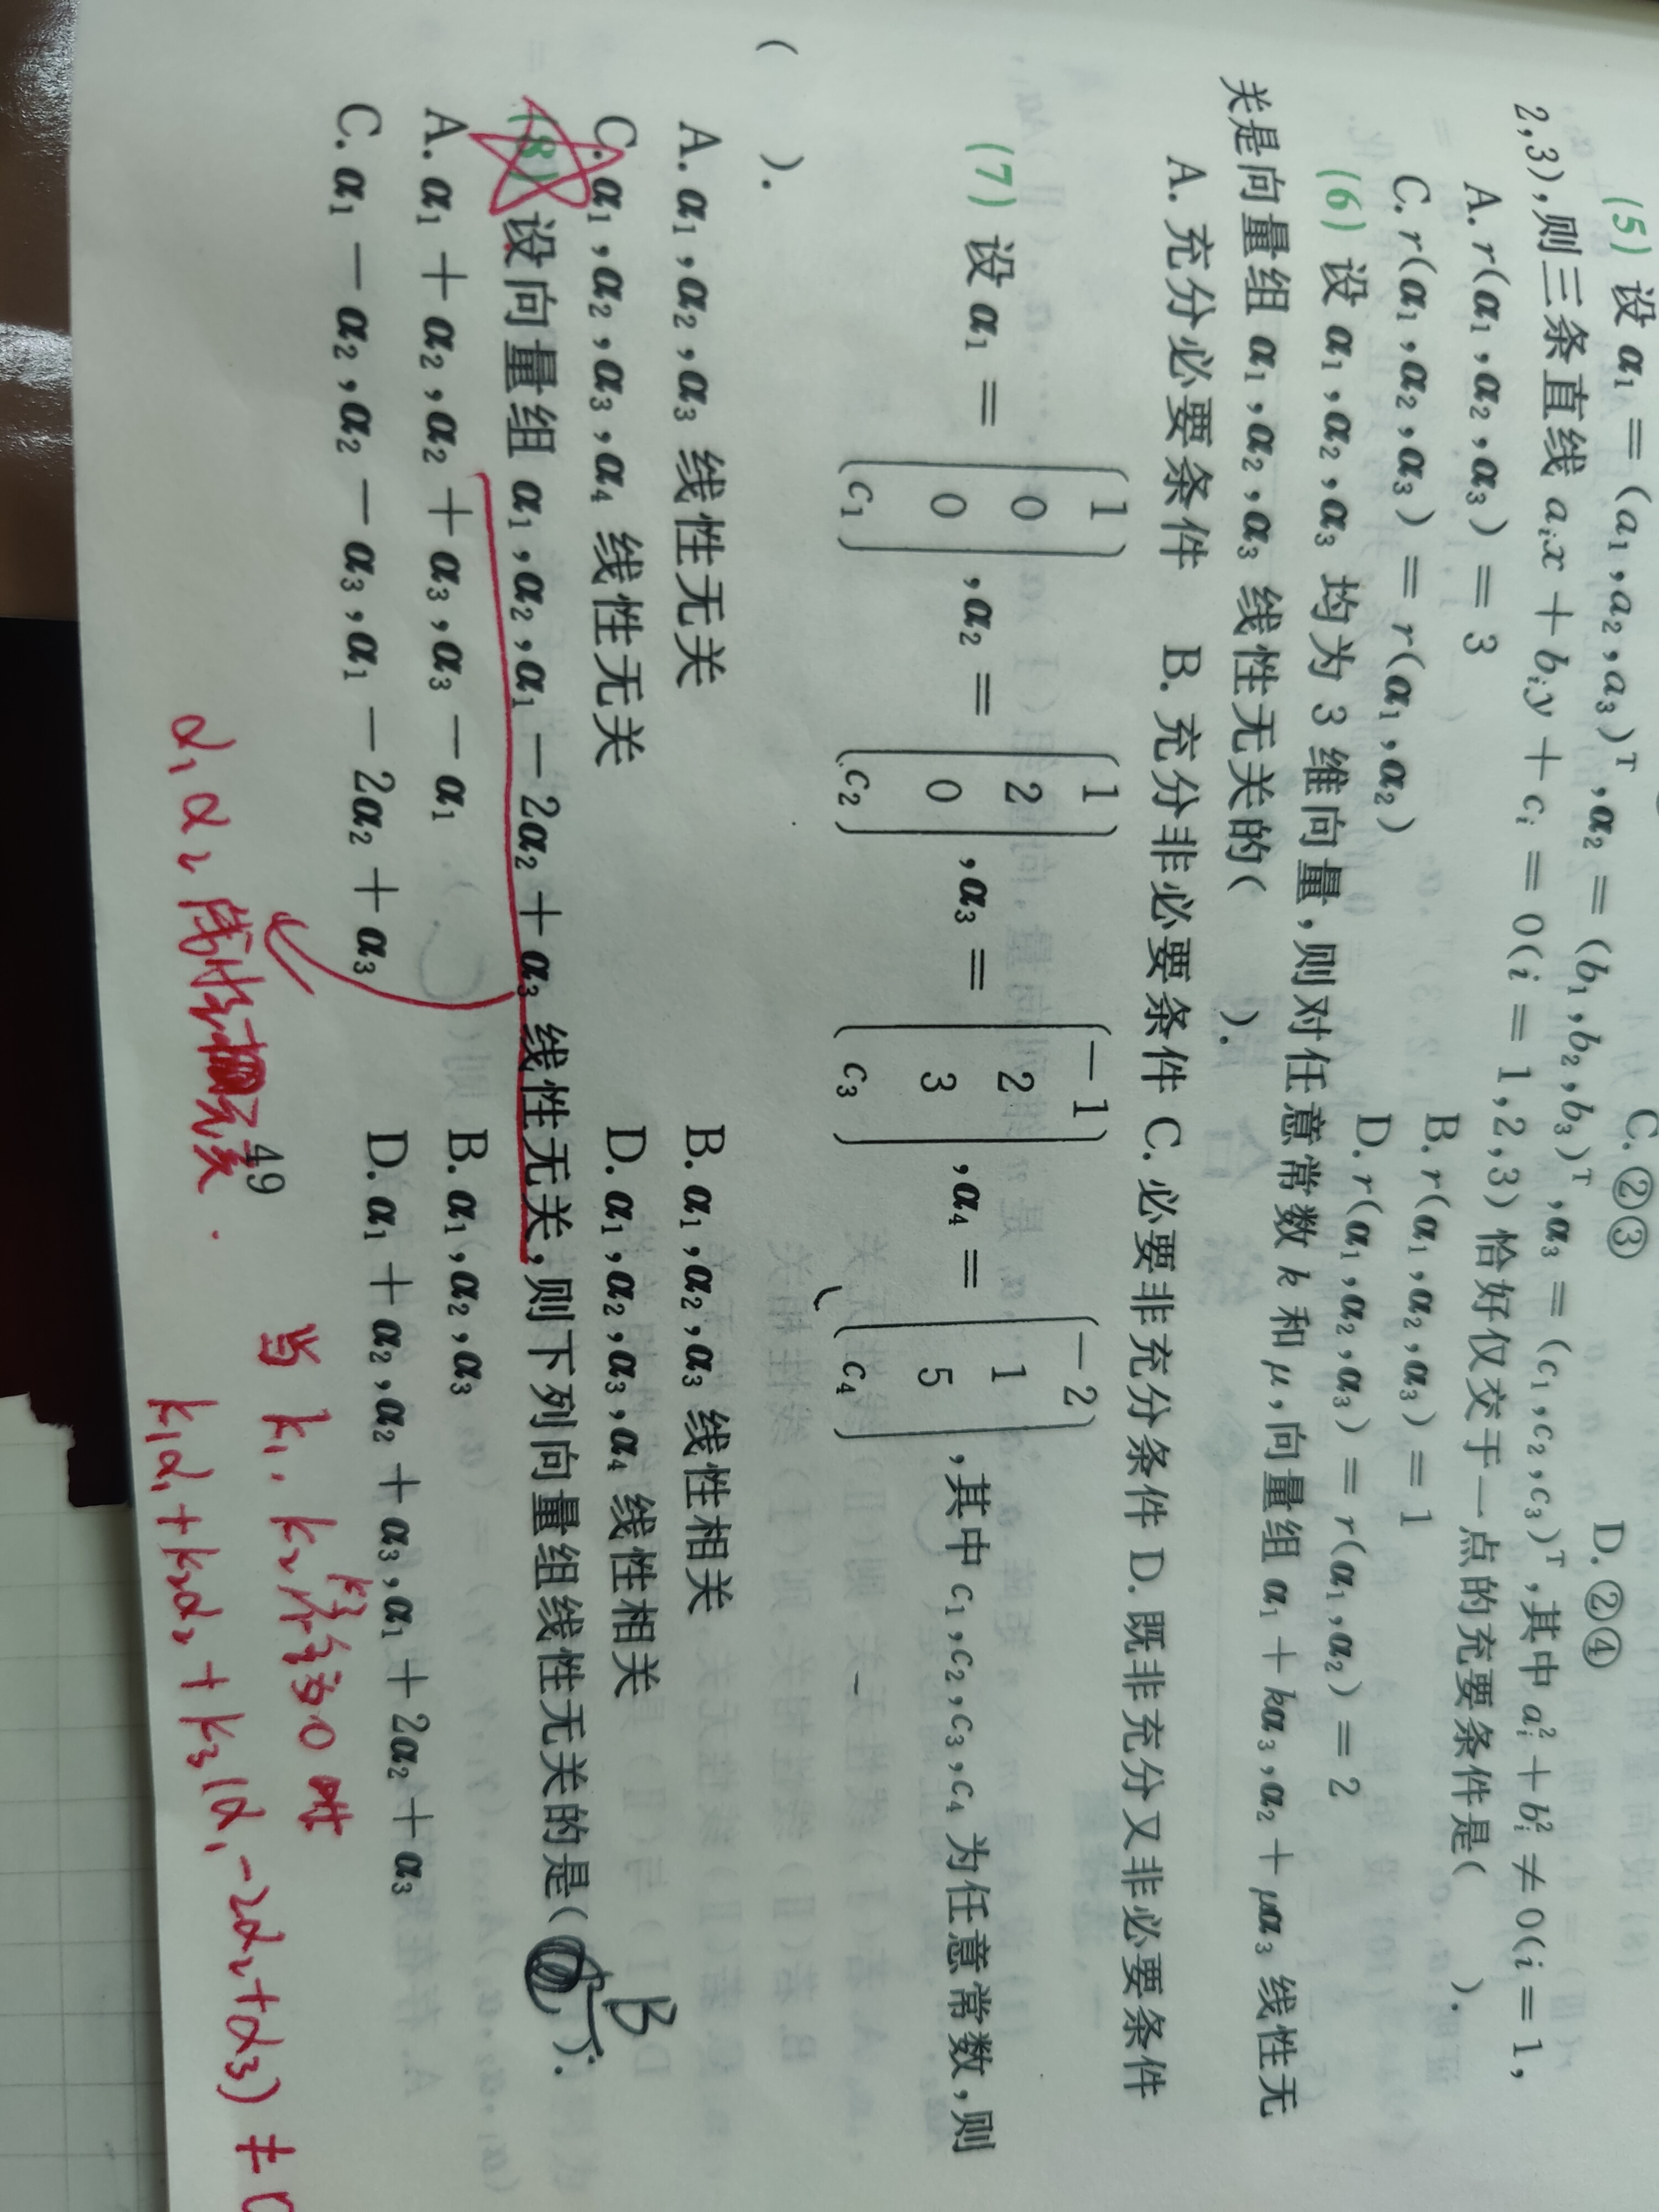 C.②③ D.②④
(5) 设 α₁ = (a₁,a₂,a₃)ᵀ,α₂ = (b₁,b₂,b₃)ᵀ,α₃ = (c₁,c₂,c₃)ᵀ,其中 aᵢ² + bᵢ² ≠ 0(i = 1,
2,3),则三条直线 aᵢx + bᵢy + cᵢ = 0(i = 1,2,3) 恰好仅交于一点的充要条件是( ).
A. r(α₁,α₂,α₃) = 3 B. r(α₁,α₂,α₃) = 1
C. r(α₁,α₂,α₃) = r(α₁,α₂) D. r(α₁,α₂,α₃) = r(α₁,α₂) = 2
(6) 设 α₁,α₂,α₃ 均为 3 维向量,则对任意常数 k 和 μ,向量组 α₁ + kα₃,α₂ + μα₃ 线性无
关是向量组 α₁,α₂,α₃ 线性无关的( ).
A. 充分必要条件 B. 充分非必要条件 C. 必要非充分条件 D. 既非充分又非必要条件
(7) 设 α₁ = (1 0 0 c₁),α₂ = (1 2 0 c₂),α₃ = (−1 2 3 c₃),α₄ = (−2 1 5 c₄),其中 c₁,c₂,c₃,c₄ 为任意常数,则
( ).
A. α₁,α₂,α₃ 线性无关 B. α₁,α₂,α₃ 线性相关
C. α₁,α₂,α₃,α₄ 线性无关 D. α₁,α₂,α₃,α₄ 线性相关
B
(8) 设向量组 α₁,α₂,α₁ − 2α₂ + α₃ 线性无关,则下列向量组线性无关的是( ).
A. α₁ + α₂,α₂ + α₃,α₃ − α₁ B. α₁,α₂,α₃
C. α₁ − α₂,α₂ − α₃,α₁ − 2α₂ + α₃ D. α₁ + α₂,α₂ + α₃,α₁ + 2α₂ + α₃
49
α₁ α₂ 线性无关.
当 k₁. k₂ k₃不全为0时
k₁α₁ + k₂α₂ + k₃(α₁ − 2α₂ + α₃) ≠ 0